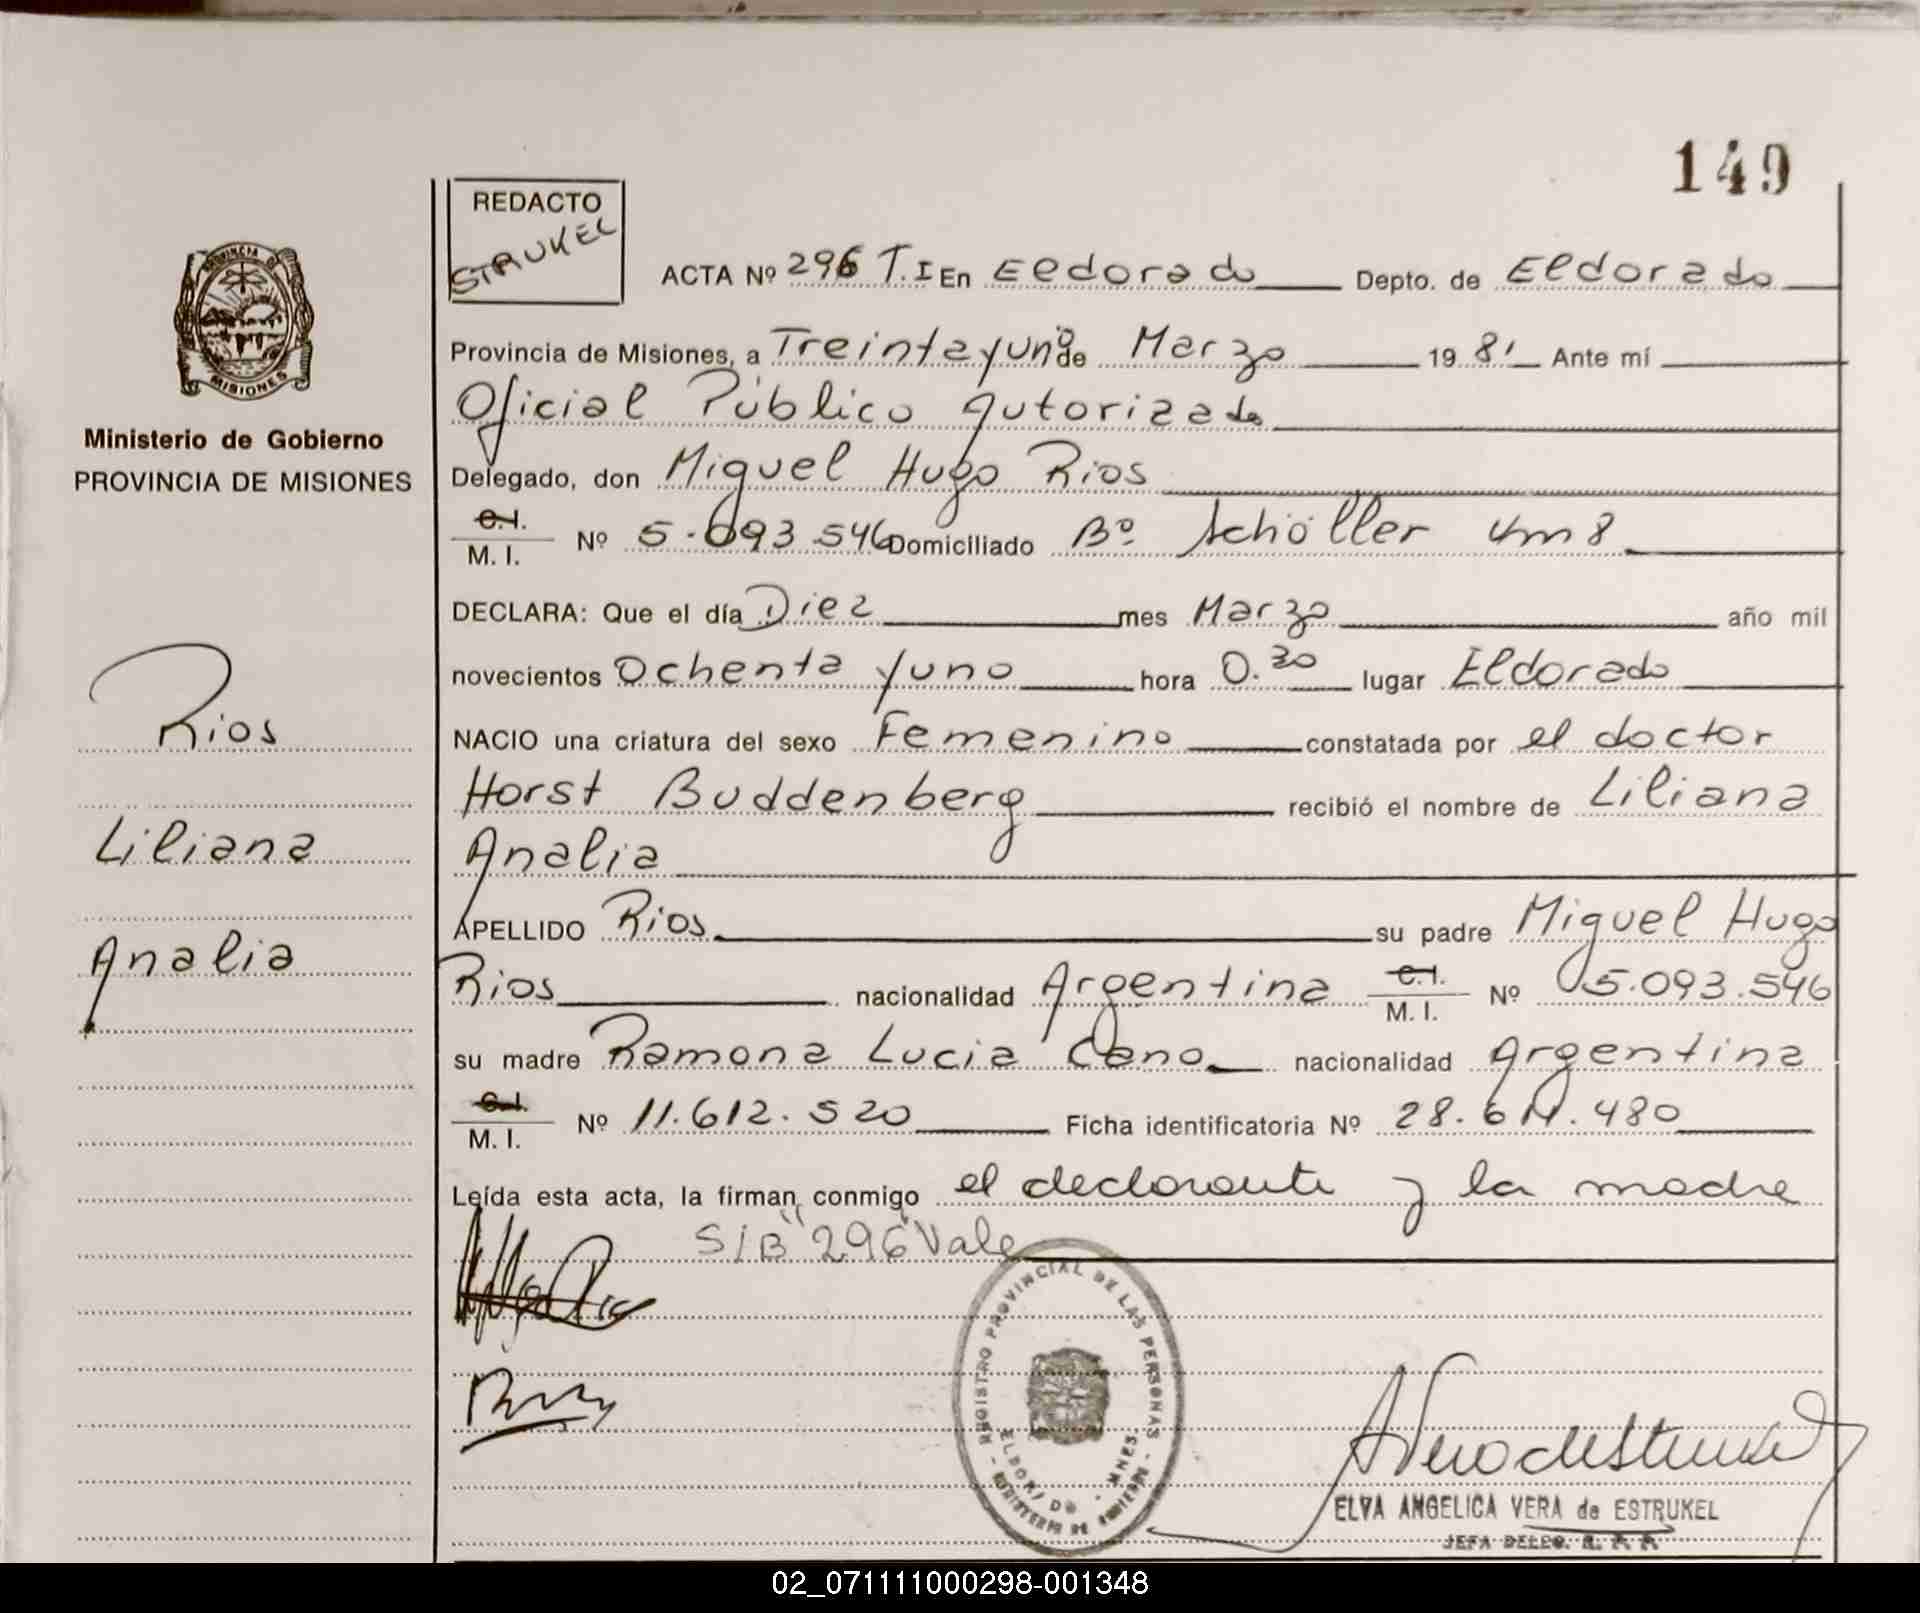 149
REDACTO
STRUKEL
ACTA Nº 296 T.I En Eldorado Depto. de Eldorado
Provincia de Misiones, a Treinta y uno de Marzo 1981 Ante mí
Oficial Público Autorizado
Delegado, don Miguel Hugo Rios
C.I. M. I. Nº 5.093.546 Domiciliado Bº Schöller Km 8
DECLARA: Que el día Diez mes Marzo año mil
novecientos Ochenta y uno hora 0.30 lugar Eldorado
NACIO una criatura del sexo Femenino constatada por el doctor
Horst Buddenberg recibió el nombre de Liliana
Analia
APELLIDO Rios su padre Miguel Hugo
Rios nacionalidad Argentina C.I. M. I. Nº 5.093.546
su madre Ramona Lucia Cano nacionalidad Argentina
C.I. M. I. Nº 11.612.520 Ficha identificatoria Nº 28.611.480
Leída esta acta, la firman conmigo el declarante y la madre
S/B "296" Vale
PROVINCIA DE
MISIONES
Ministerio de Gobierno
PROVINCIA DE MISIONES
Rios
Liliana
Analia
REGISTRO PROVINCIAL DE LAS PERSONAS
ELDORADO - MNES.
MINISTERIO DE GOBIERNO
ELVA ANGELICA VERA de ESTRUKEL
JEFA DELEG. R. P. P.
02_071111000298-001348